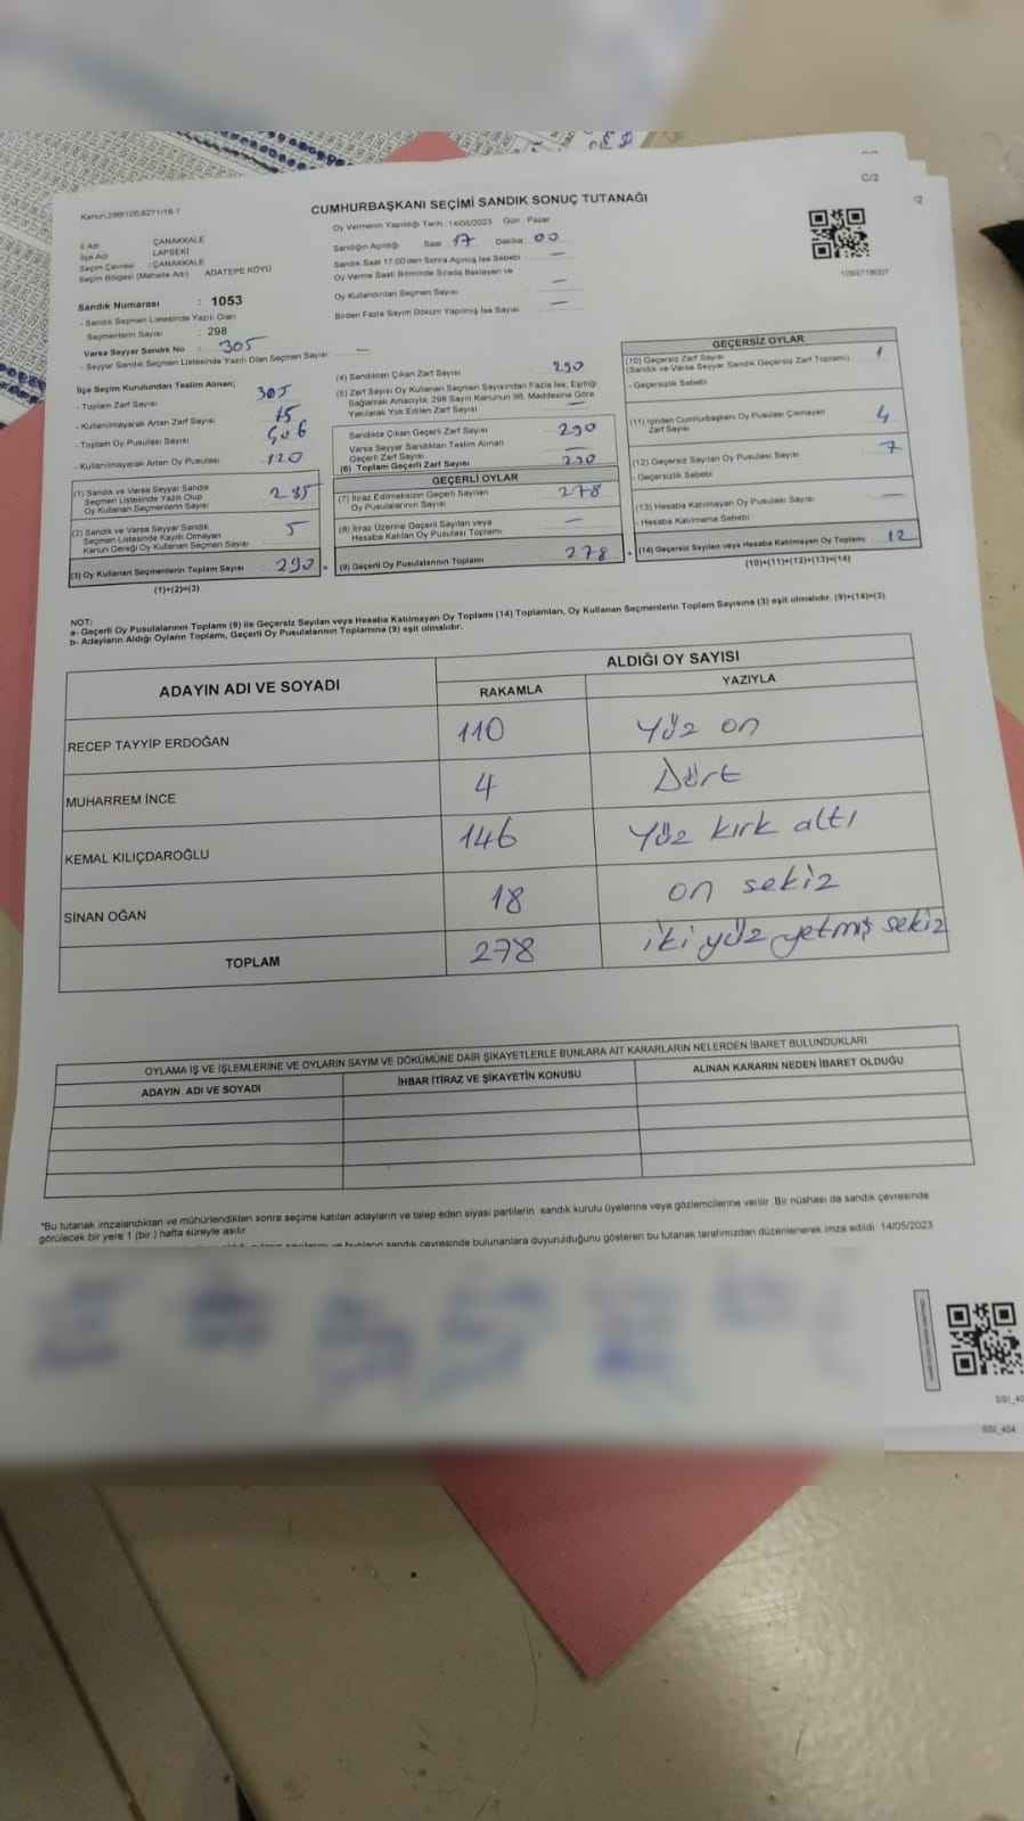 C/2
CUMHURBAŞKANI SEÇİMİ SANDIK SONUÇ TUTANAĞI
Oy Vermenin Yapıldığı Tarih : 14/05/2023 Gün : Pazar
İl Adı : ÇANAKKALE
İlçe Adı : LAPSEKİ
Seçim Çevresi : ÇANAKKALE
Seçim Bölgesi (Mahalle Adı) : ADATEPE KÖYÜ
Sandığın Açıldığı Saat 17 Dakika 00
Sandık Saat 17.00'den Sonra Açılmış İse Sebebi —
Oy Verme Saati Bitiminde Sırada Bekleyen ve
Oy Kullandırılan Seçmen Sayısı —
Birden Fazla Sayım Döküm Yapılmış İse Sayısı —
Sandık Numarası : 1053
- Sandık Seçmen Listesinde Yazılı Olan
Seçmenlerin Sayısı : 298
Varsa Seyyar Sandık No : 305
- Seyyar Sandık Seçmen Listesinde Yazılı Olan Seçmen Sayısı —
İlçe Seçim Kurulundan Teslim Alınan;
- Toplam Zarf Sayısı 305
- Kullanılmayarak Artan Zarf Sayısı 15
- Toplam Oy Pusulası Sayısı
- Kullanılmayarak Artan Oy Pusulası 120
(1) Sandık ve Varsa Seyyar Sandık
Seçmen Listesinde Yazılı Olup
Oy Kullanan Seçmenlerin Sayısı 285
(2) Sandık ve Varsa Seyyar Sandık
Seçmen Listesinde Kayıtlı Olmayan
Kanun Gereği Oy Kullanan Seçmen Sayısı 5
(3) Oy Kullanan Seçmenlerin Toplam Sayısı 290
(1)+(2)=(3)
(4) Sandıktan Çıkan Zarf Sayısı 290
(5) Zarf Sayısı Oy Kullanan Seçmen Sayısından Fazla İse, Eşitliği
Sağlamak Amacıyla, 298 Sayılı Kanunun 98. Maddesine Göre
Yakılarak Yok Edilen Zarf Sayısı —
Sandıkta Çıkan Geçerli Zarf Sayısı 290
Varsa Seyyar Sandıktan Teslim Alınan
Geçerli Zarf Sayısı —
(6) Toplam Geçerli Zarf Sayısı 290
GEÇERLİ OYLAR
(7) İtiraz Edilmeksizin Geçerli Sayılan
Oy Pusulalarının Sayısı 278
(8) İtiraz Üzerine Geçerli Sayılan veya
Hesaba Katılan Oy Pusulası Toplamı —
(9) Geçerli Oy Pusulalarının Toplamı 278
GEÇERSİZ OYLAR
(10) Geçersiz Zarf Sayısı
(Sandık ve Varsa Seyyar Sandık Geçersiz Zarf Toplamı) 1
- Geçersizlik Sebebi
(11) İçinden Cumhurbaşkanı Oy Pusulası Çıkmayan
Zarf Sayısı 4
(12) Geçersiz Sayılan Oy Pusulası Sayısı 7
- Geçersizlik Sebebi
(13) Hesaba Katılmayan Oy Pusulası Sayısı —
- Hesaba Katılmama Sebebi
(14) Geçersiz Sayılan veya Hesaba Katılmayan Oy Toplamı 12
(10)+(11)+(12)+(13)=(14)
NOT:
a- Geçerli Oy Pusulalarının Toplamı (9) ile Geçersiz Sayılan veya Hesaba Katılmayan Oy Toplamı (14) Toplamları, Oy Kullanan Seçmenlerin Toplam Sayısına (3) eşit olmalıdır. (9)+(14)=(3)
b- Adayların Aldığı Oyların Toplamı, Geçerli Oy Pusulalarının Toplamına (9) eşit olmalıdır.
ADAYIN ADI VE SOYADI
ALDIĞI OY SAYISI
RAKAMLA YAZIYLA
RECEP TAYYİP ERDOĞAN 110 Yüz on
MUHARREM İNCE 4 Dört
KEMAL KILIÇDAROĞLU 146 Yüz kırk altı
SİNAN OĞAN 18 on sekiz
TOPLAM 278 iki yüz yetmiş sekiz
OYLAMA İŞ VE İŞLEMLERİNE VE OYLARIN SAYIM VE DÖKÜMÜNE DAİR ŞİKAYETLERLE BUNLARA AİT KARARLARIN NELERDEN İBARET BULUNDUKLARI
ADAYIN ADI VE SOYADI İHBAR İTİRAZ VE ŞİKAYETİN KONUSU ALINAN KARARIN NEDEN İBARET OLDUĞU
*Bu tutanak imzalandıktan ve mühürlendikten sonra seçime katılan adayların ve talep eden siyasi partilerin sandık kurulu üyelerine veya gözlemcilerine verilir. Bir nüshası da sandık çevresinde
görülecek bir yere 1 (bir) hafta süreyle asılır.
sandık çevresinde bulunanlara duyurulduğunu gösteren bu tutanak tarafımızdan düzenlenerek imza edildi. 14/05/2023